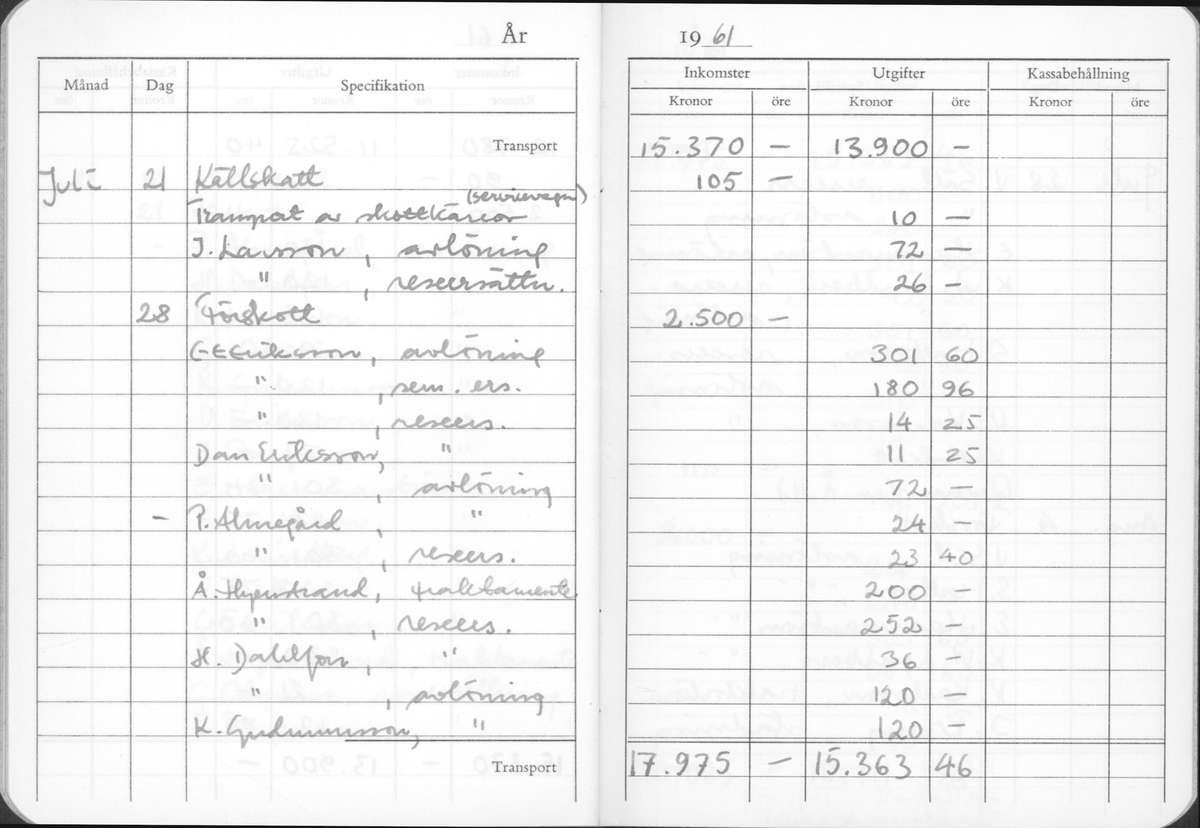 År 1961
Månad Dag Specifikation Inkomster Utgifter Kassabehållning
Kronor öre Kronor öre Kronor öre
Transport 15.370 — 13.900 —
Juli 21 Källskatt 105 —
(servicevagn)
Transport av skottkärror 10 —
J. Larsson, avlöning 72 —
", reseersättn. 26 —
28 Förskott 2.500 —
G E Eriksson, avlöning 301 60
", sem. ers. 180 96
", reseers. 14 25
Dan Eriksson, " 11 25
", avlöning 72 —
— P. Almegård, " 24 —
", reseers. 23 40
Å. Hyenstrand, traktamente 200 —
", reseers. 252 —
H. , " 36 —
", avlöning 120 —
K. Gudmunsson, " 120 —
Transport 17.975 — 15.363 46